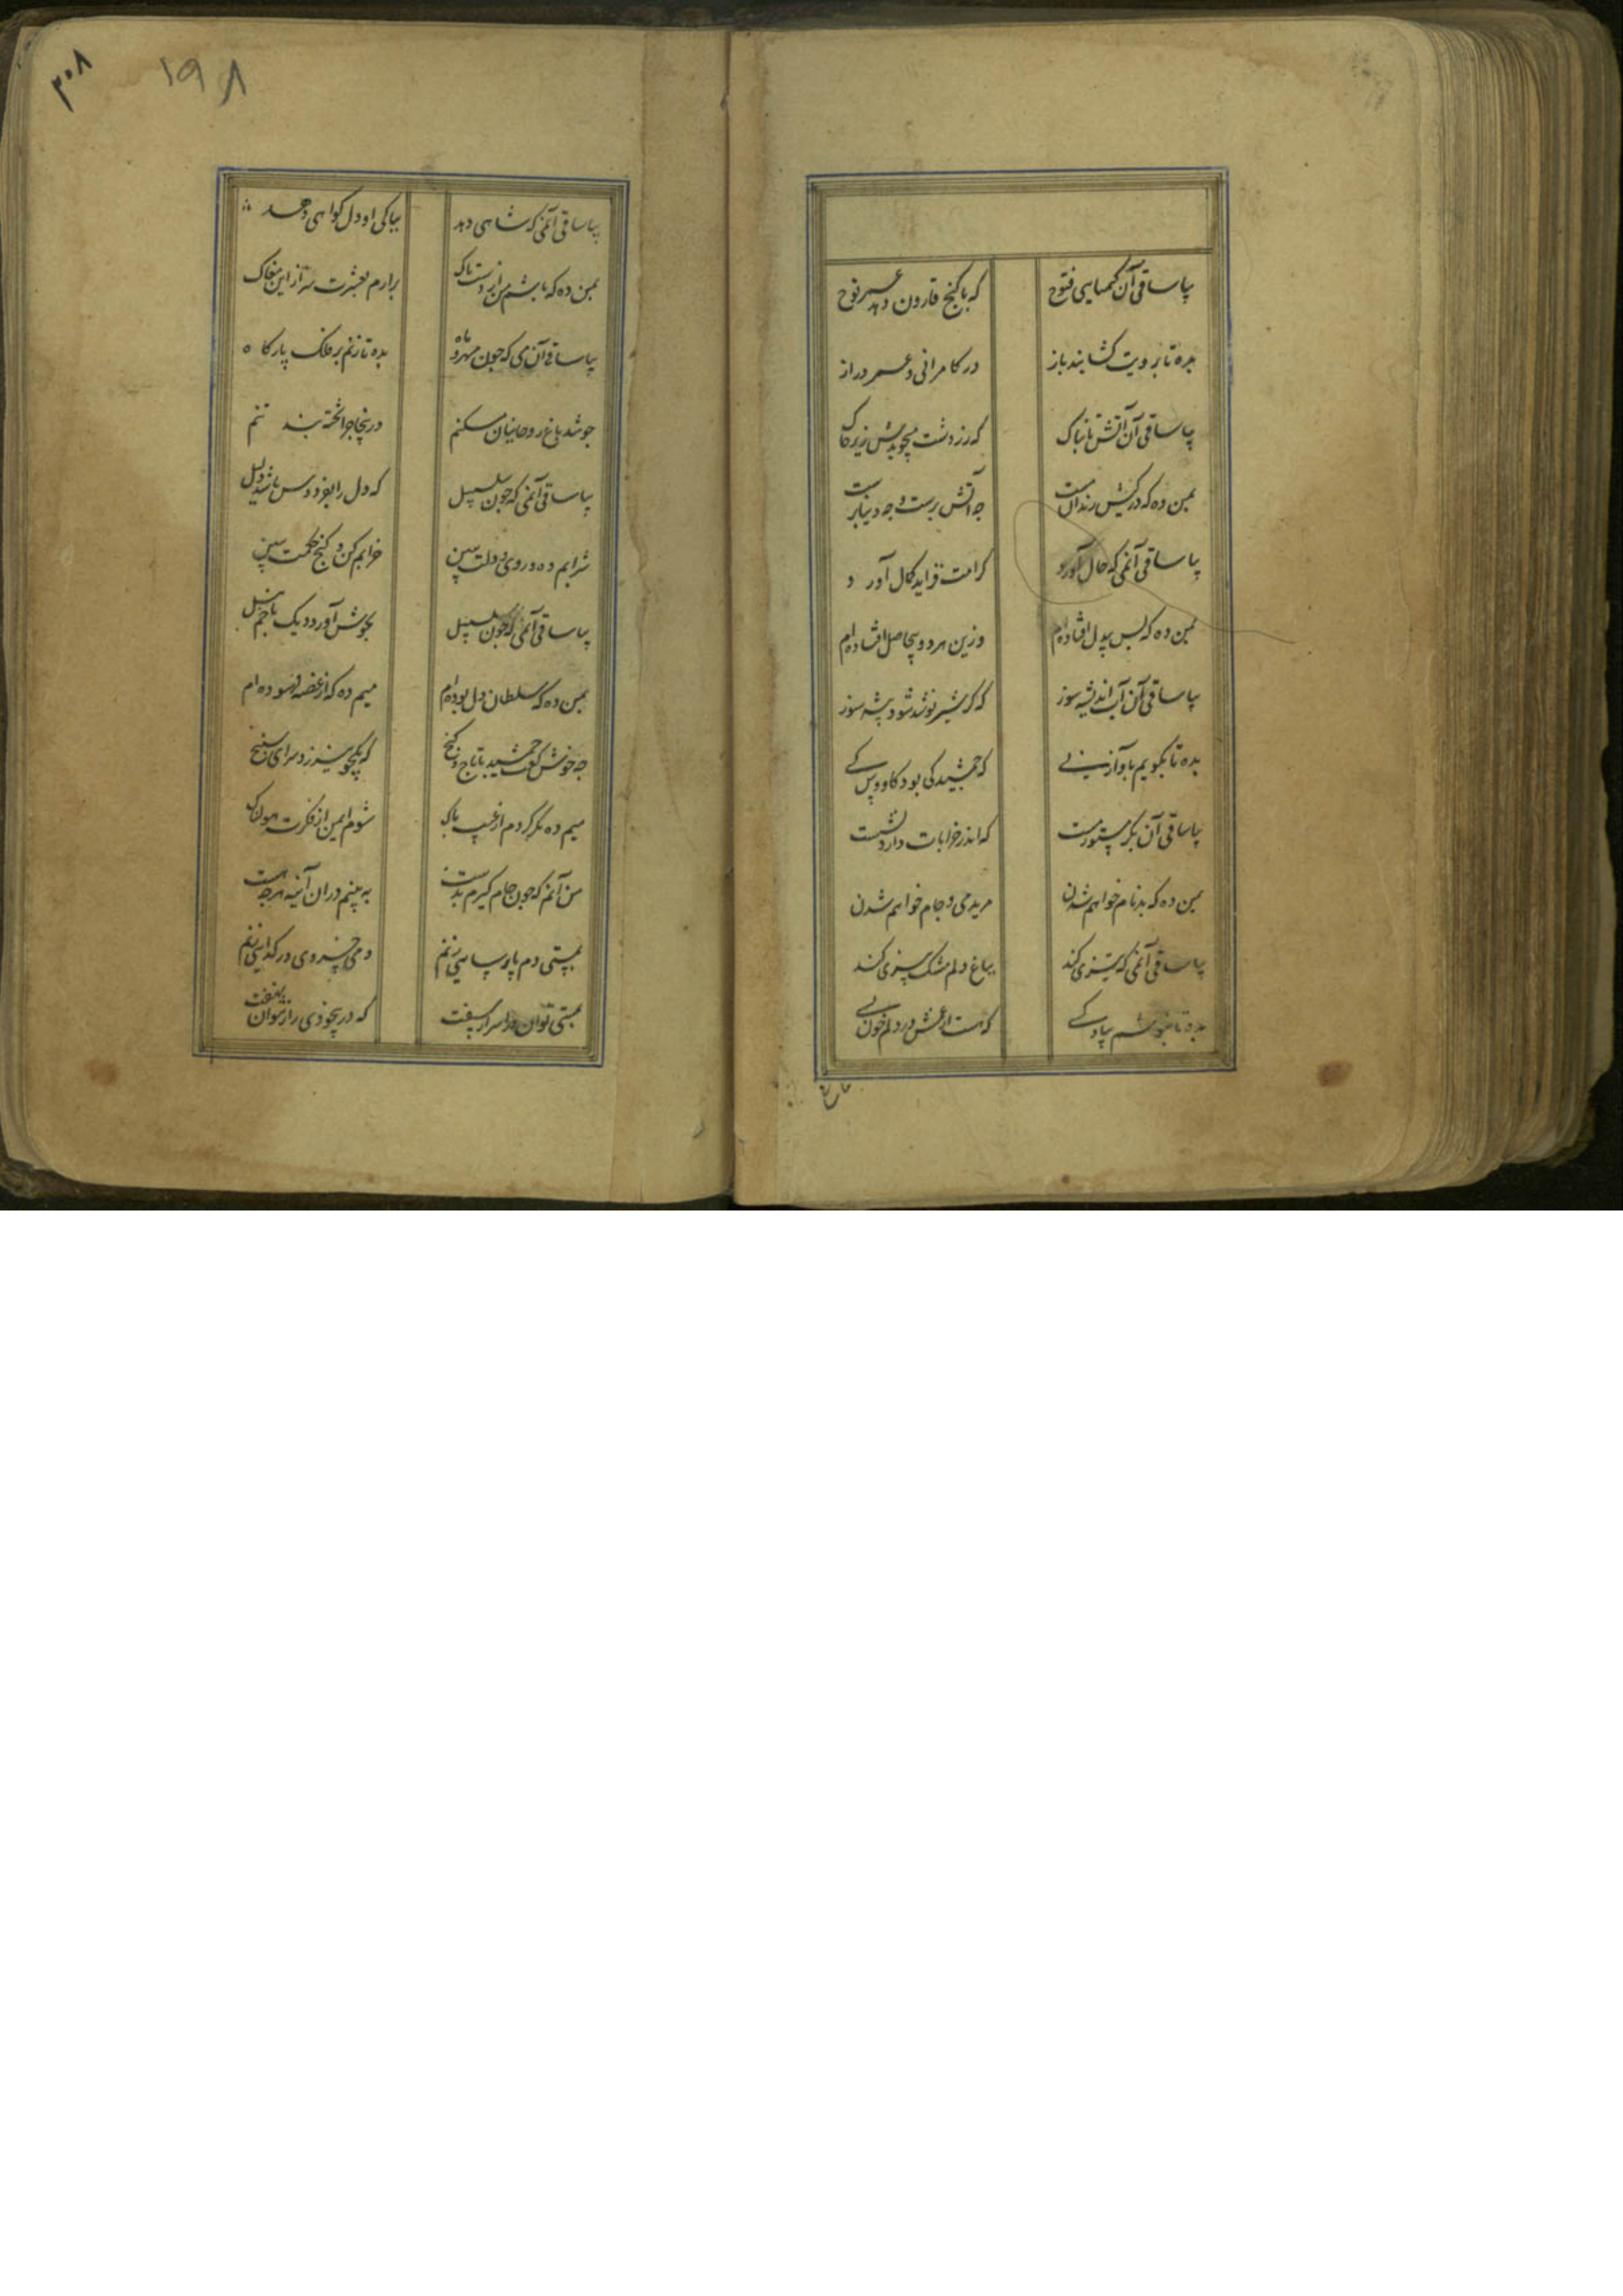 بیا ساقی آن کیمیای فتوح که با گنج قارون دهد عمر نوح
بده تا برویت گشایند باز در کامرانی و عمر دراز
بیا ساقی آن آتش تابناک که زردشت میجویدش زیر خاک
بمن ده که در کیش رندان مست چه آتش پرست و چه دنیاپرست
بیا ساقی آن می که حال آورد کرامت فزاید کمال آورد
بمن ده که بس بیدل افتاده‌ام وزین هر دو بیحاصل افتاده‌ام
بیا ساقی آن آب اندیشه سوز که گر شیر نوشد شود بیشه سوز
بده تا بگویم باواز نی که جمشید کی بود کاووس کی
بیا ساقی آن بکر مستور مست که اندر خرابات دارد نشست
بمن ده که بدنام خواهم شدن مرید می و جام خواهم شدن
بیا ساقی آن می که تیزی کند بباغ دلم مشک بیزی کند
بده تا بنوشم بیاد کسی که هست از غمش در دلم خون بسی
۱۹۸
۳۰۸
بیا ساقی آن می که شاهی دهد بپاکی او دل گواهی دهد
بمن ده که تا بشم من از دست پاک برارم بعشرت سر از این مغاک
بیا ساقی آن می که چون مهر و ماه بده تا زنم بر فلک بارگاه
چو شد باغ روحانیان مسکنم درینجا چرا تخته بند تنم
بیا ساقی آن می که چون سلسبیل که دل را بفردوس باشد دلیل
شرابم ده و روی دولت ببین خرابم کن و گنج حکمت ببین
بیا ساقی آن می که چون سلسبیل بجوش آورد دیک
بمن ده که سلطان دل بوده‌ام میم ده که از غصه فرسوده‌ام
چه خوش گفت جمشید با تاج و گنج که یکجو نیرزد سرای سپنج
میم ده مگر گردم از عیب پاک شوم ایمن از فکرت هولناک
من آنم که چون جام گیرم بدست ببینم دران آینه هرچه هست
بمستی دم پارسایی زنم دم خسروی در گدایی زنم
بمستی توان در اسرار سفت که در بیخودی راز نتوان نهفت